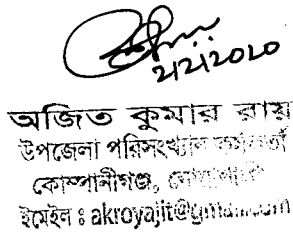 ২/২/২০২০
অজিত কুমার রায়
উপজেলা পরিসংখ্যান কর্মকর্তা
কোম্পানীগঞ্জ, নোয়াখালী
ইমেইল : akroyajit@gmail.com